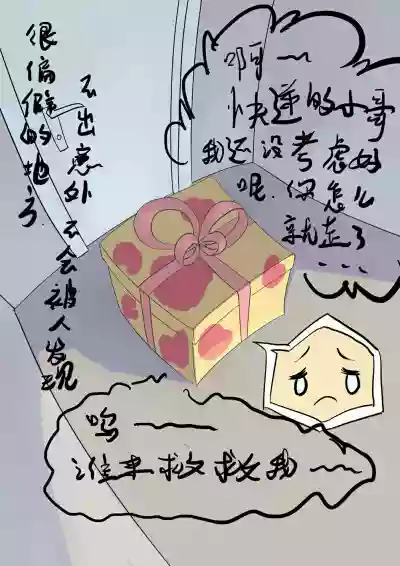 很偏僻的地方
不出意外不会被人发现
啊～
快递的小哥
我还没考虑好
呢.你怎么
就走了
....
呜——
谁来救救我～～